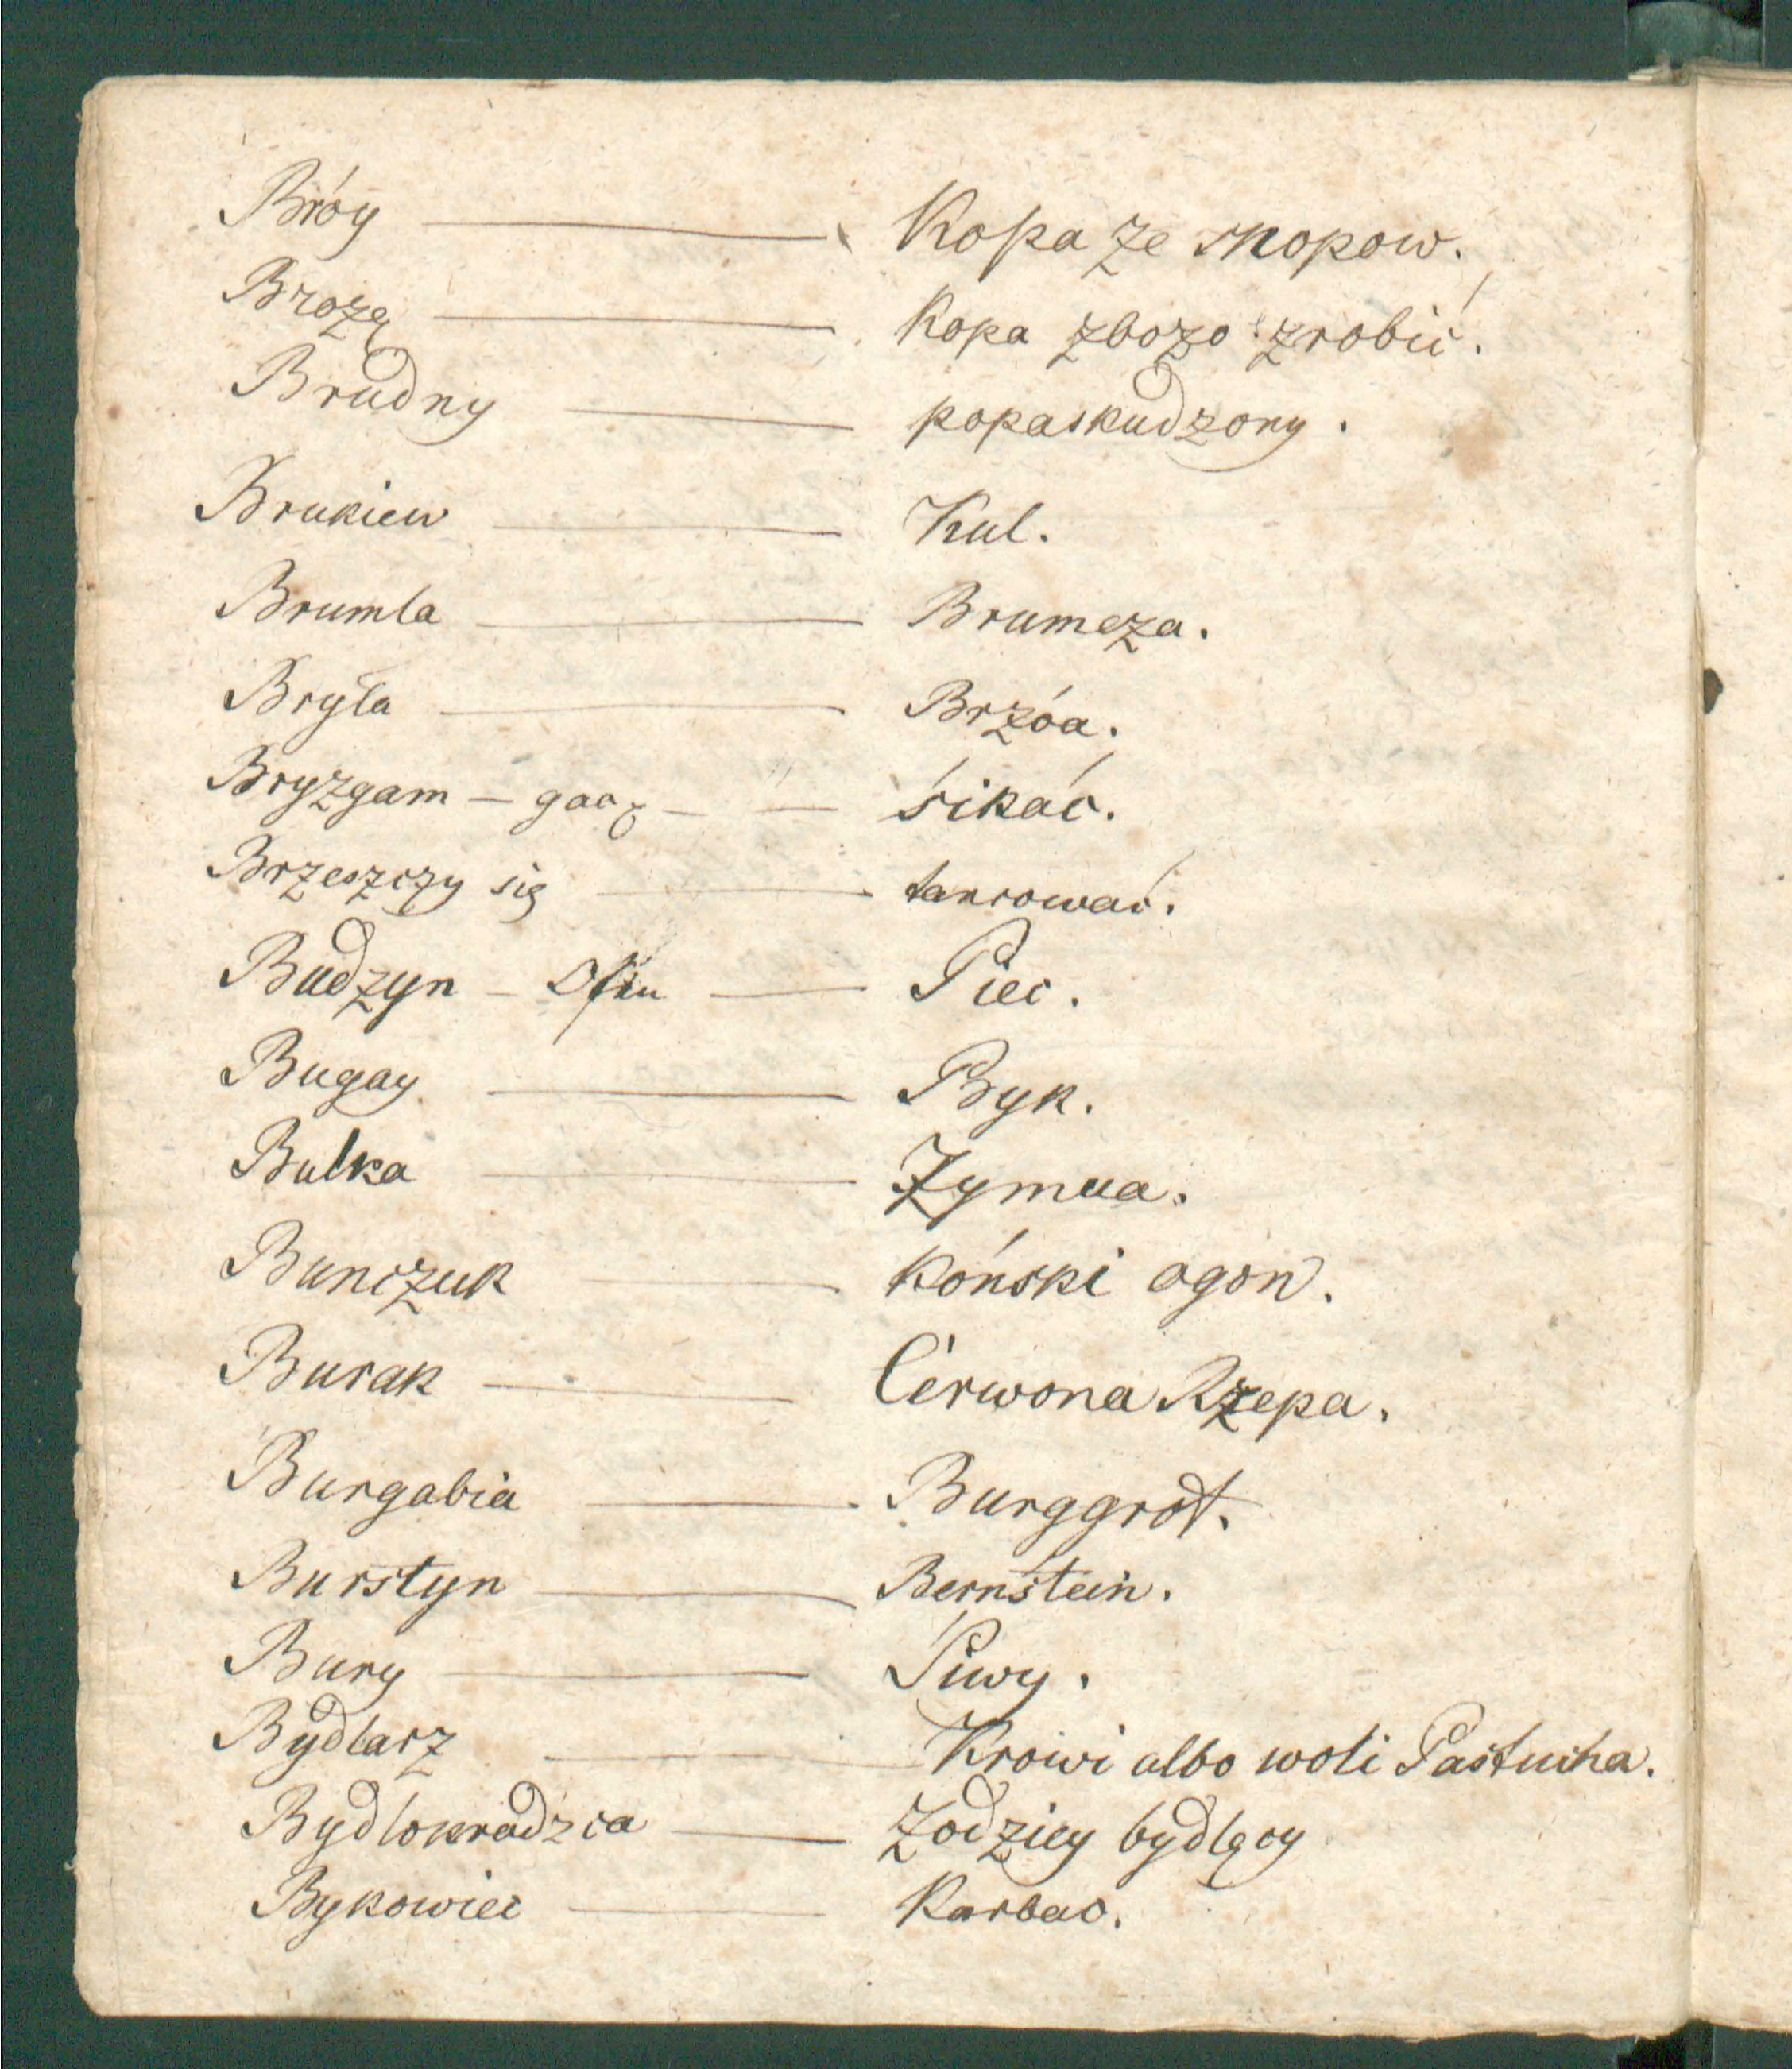 Bróy — Kopa ze snopow.
Brozę — Kopa zbozo zrobić.
Brudny — popaskudzony.
Brukiew — Kul.
Brumla — Brumeza.
Bryła — Brzóa.
Bryzgam — gacz — — śikać.
Brzeszczy się — tancować.
Budzyn — Ofen — Piec.
Bugay — Byk.
Bulka — Zymua.
Bunczuk — Kóński ogon.
Burak — Cerwona Rzepa.
Burgabia — Burggrof.
Burstyn — Bernstein.
Bury — Siwy.
Bydlarz — Krowi albo woli Pastucha.
Bydlokradzca — Zodziey bydlęcy
Bykowiec — Karbac.